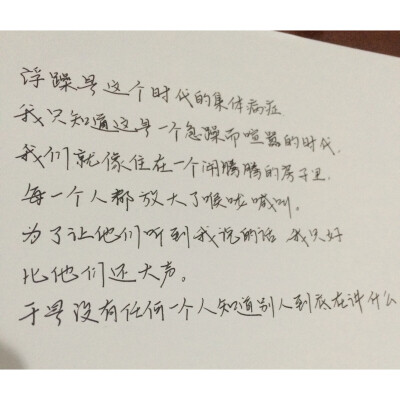 浮躁是这个时代的集体病症
我只知道这是一个急躁而喧嚣的时代.
我们就像住在一个闹腾腾的房子里.
每一个人都放大了喉咙喊叫。
为了让他们听到我说的话 我只好
比他们还大声。
于是没有任何一个人知道别人到底在讲什么